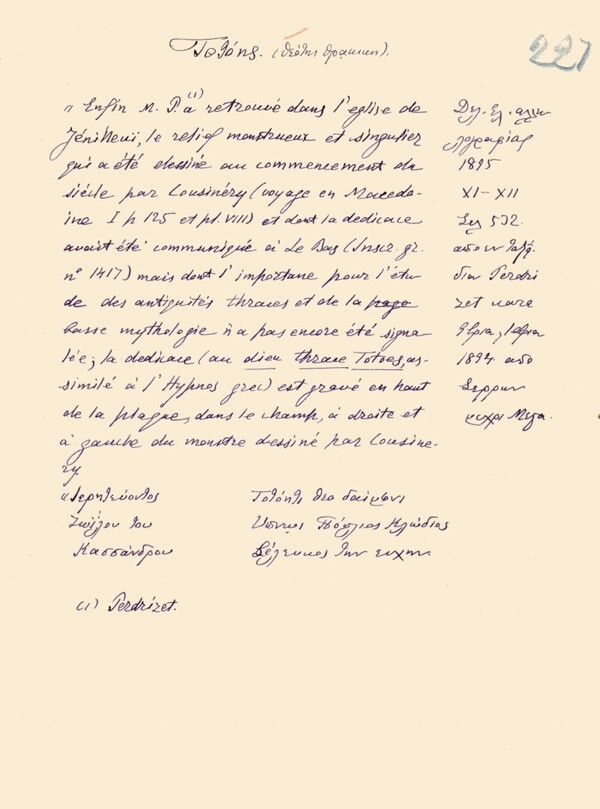 Τοτόης. (θεότης θρακικη).
227
" Enfin M. P.(1) a retrouvé dans l'eglise de
Jéniкeuï, le relief monstrueux et singulier
qui a été dessiné au commencement du
siécle par Cousinéry (voyage en Macedo-
ine I p 125 et pl. VIII) et dont la dedicace
avait été communiqué à Le Bas (Inscr. gr.
n° 1417) mais dont l'importane pour l'étu-
de des antiquités thraces et de la page
basse mythologie n'a pas encore été signa
lée; la dedicace (au dieu thrace Totoes, as-
similé à l'Hypnos grec) est gravé en haut
de la plaque, dans le champ, à droite et
à gauche du monstre dessiné par Cousine-
ry.
Δελ. Ελ. αλλη
λογραφίας
1895
XI–XII
Σελ 532.
απο ταξεί
διον Perdri
zet κατα
1894 απο
Σερρων
μεχρι Μεγα.
" Ιερητεύοντος
Ζωίλου του
Κασσάνδρου
Τοτόητι θεο δαίμονι
Υπνωι Πόπλιος Κλώδιος
Σέλευκος την ευχην
(1) Perdrizet.